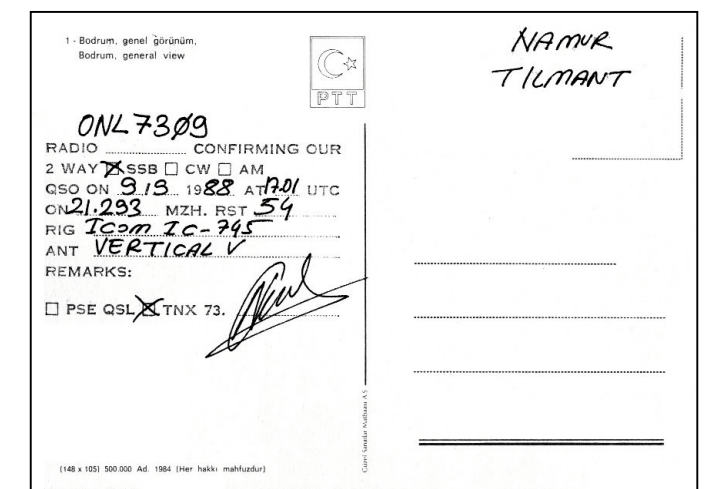 1 - Bodrum, genel görünüm,
Bodrum, general view
PTT
NAMUR
TILMANT
ONL 73Ø9
RADIO CONFIRMING OUR
2 WAY ☒ SSB ☐ CW ☐ AM
QSO ON 9 / 9 1988 AT 17.01 UTC
ON 21.293 MZH. RST 54
RIG Icom Ic-745
ANT VERTICAL V
REMARKS:
☐ PSE QSL ☒ TNX 73.
Güzel Sanatlar Matbaası A.S.
(148 x 105) 500.000 Ad. 1984 (Her hakkı mahfuzdur)